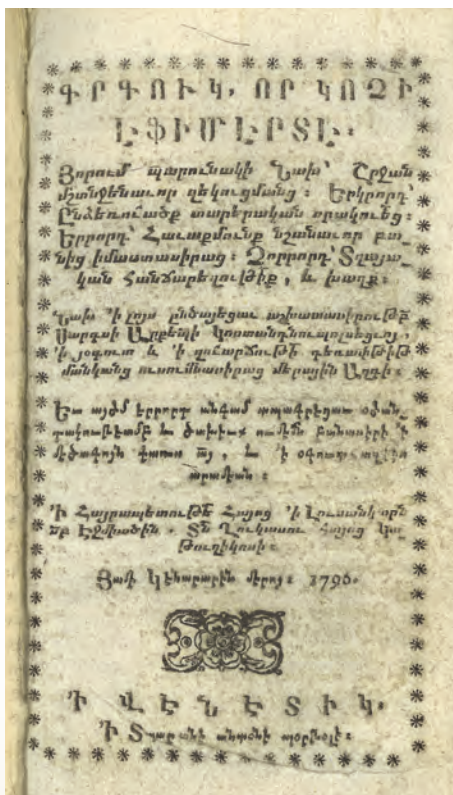 ԳՐԳՈՒԿ, ՈՐ ԿՈՉԻ
ԷՖԻՄԷՐՏԷ։
Յորում պարունակի Նախ՝ Շրջան
մշտնջենաւոր զեկուցմանց։ Երկրորդ՝
Ընձեռուածք տարերական որակուեց։
Երրորդ՝ Հաւաքմունք նշանաւոր բա-
նից իմաստասիրաց։ Չորրորդ՝ Տղայա-
կան Հանճարեղութիք, և խաղք։
Նախ ՚ի լոյս ընծայեցաւ աշխատասիրութբ
Սարգսի Արքեպի Կոստանդնուպօլսեցւոյ,
՚ի յօգուտ և ՚ի զուարճութի
մանկանց ուսումնասիրաց մերային Ազգի։
Եւ այժմ երրորդ անգամ տպագրեցաւ
և ծախիւք
՚ի Հայրապետութե Հայոց ՚ի Լուսանկ
սբ Էջմիածին. Տն Ղուկասու Հայոց Կա-
թուղիկոսի։
Յամի Կենարարին մերոյ։ 1796.
Ի ՎԷՆԷՏԻԿ.
Ի Տպարանի անտօնի պօրթօլի։